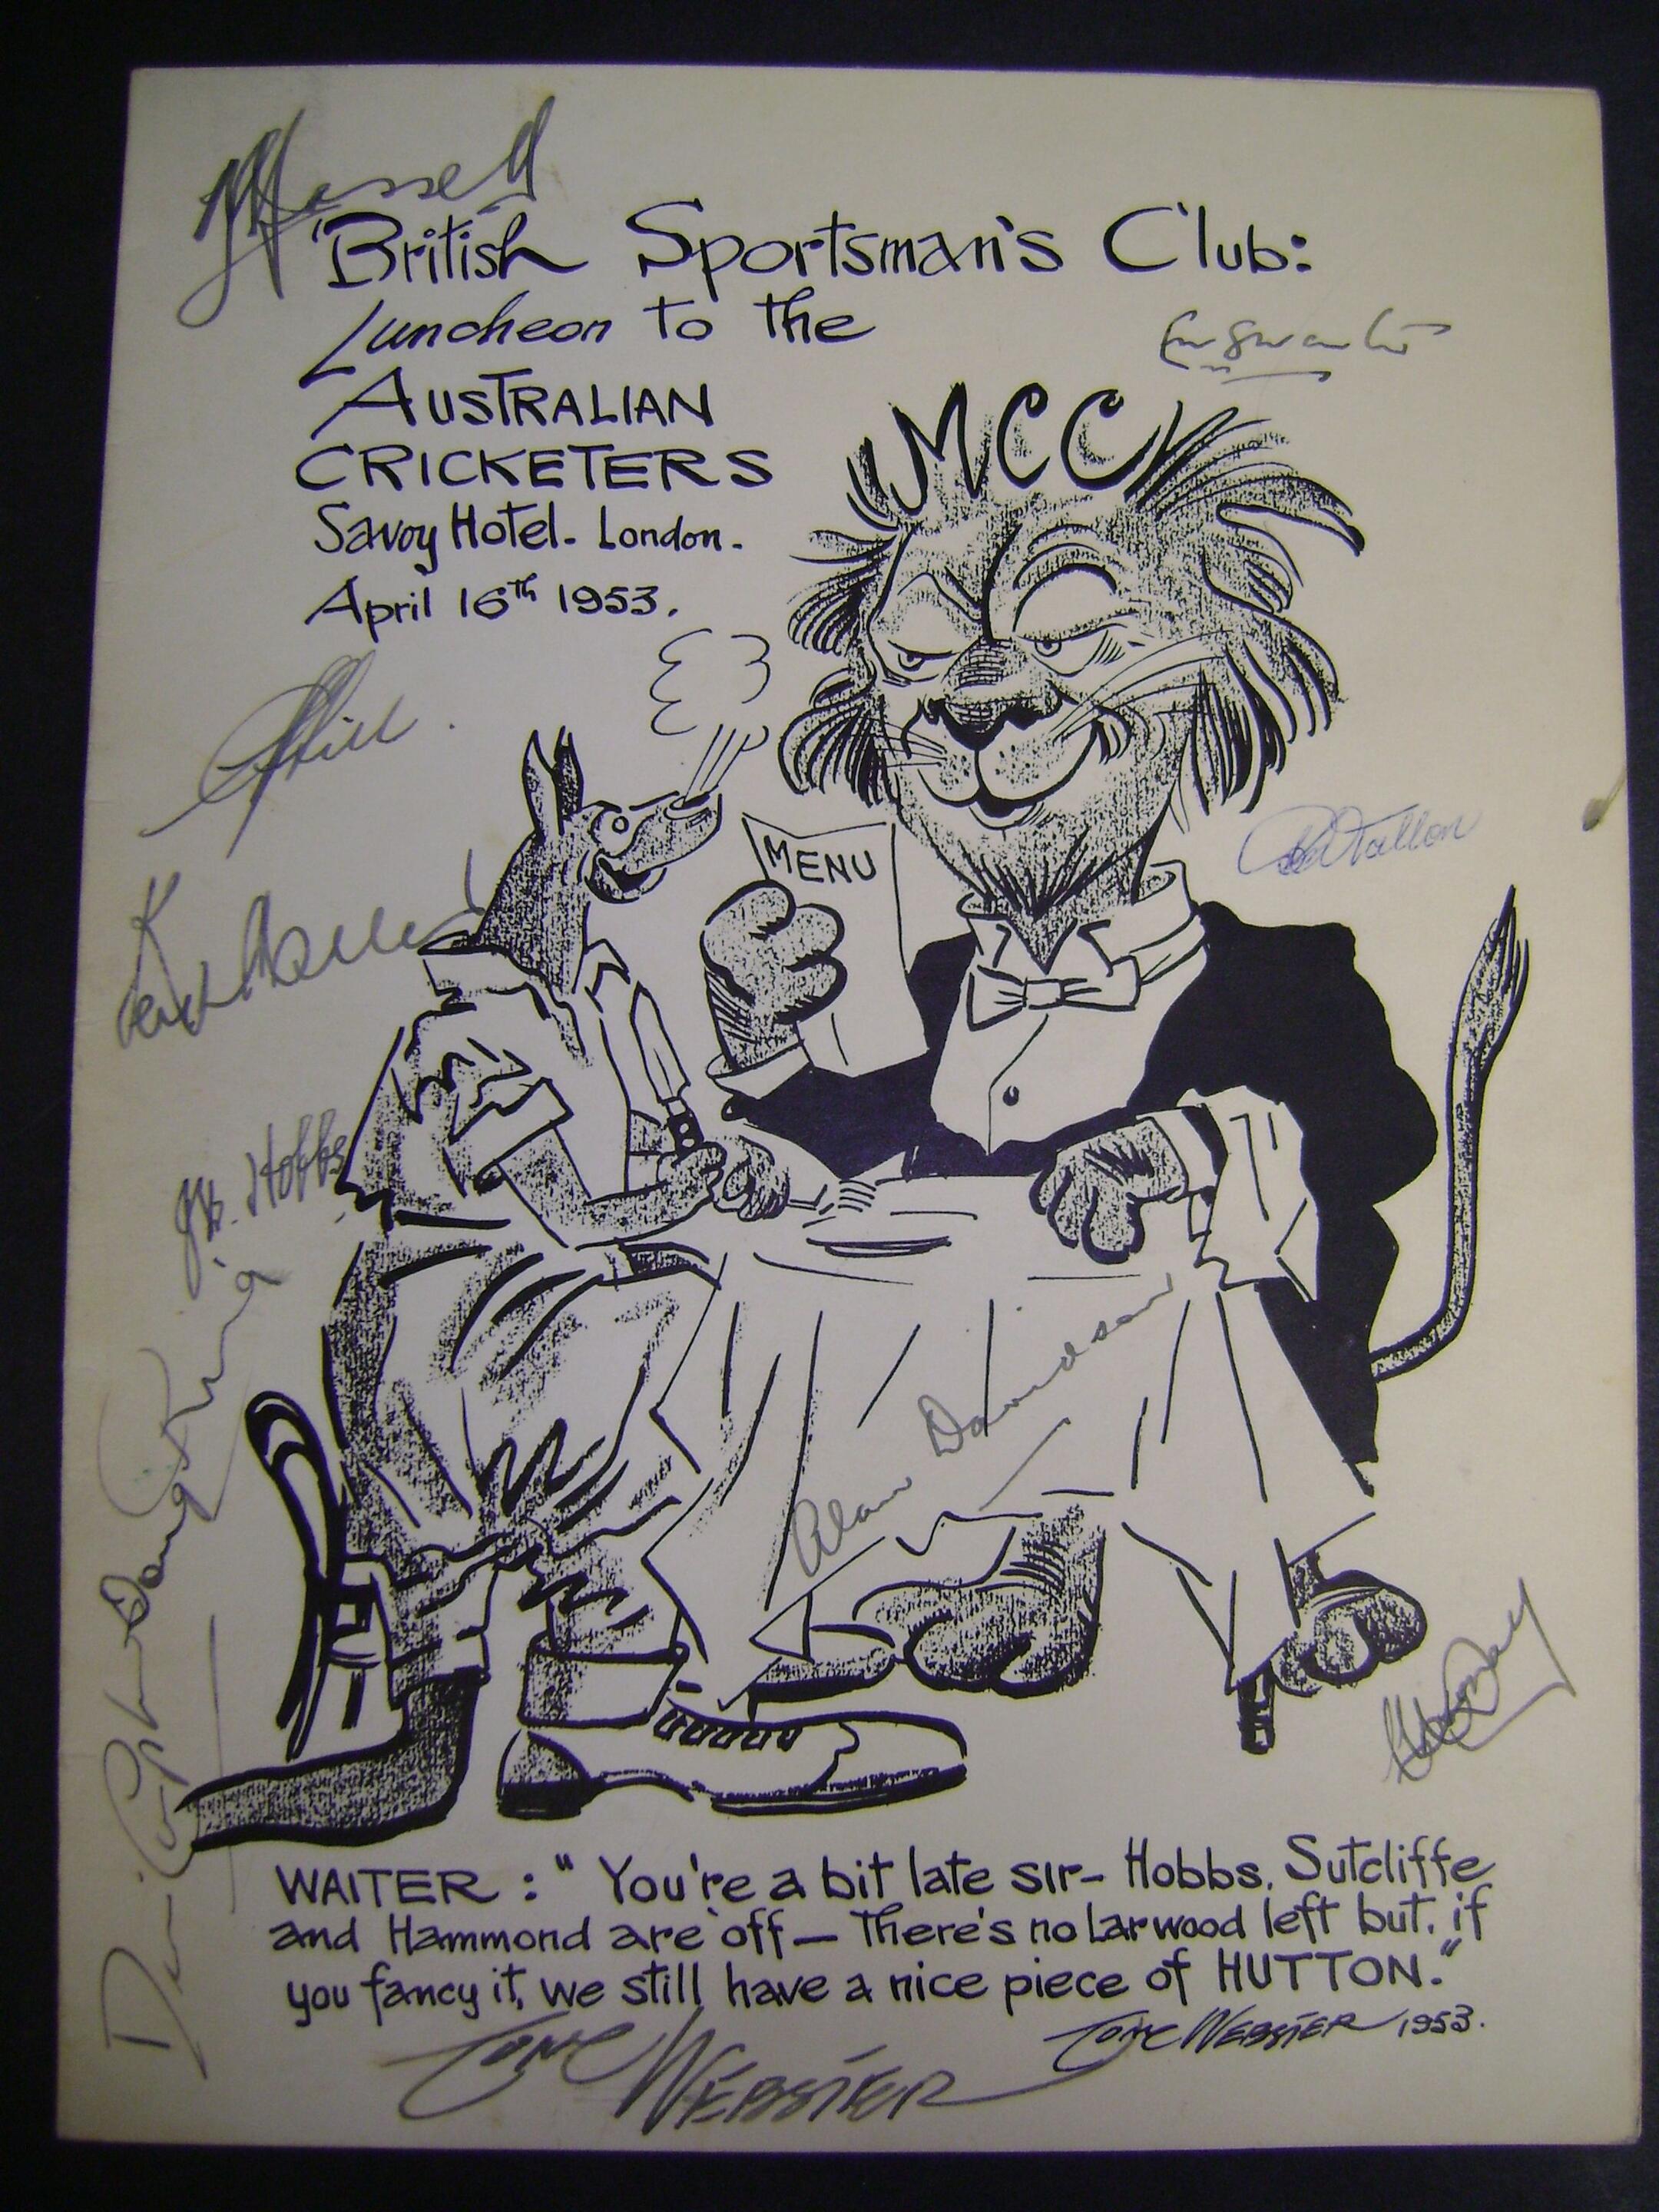 J Hassett
British Sportsman's Club:
Luncheon to the
AUSTRALIAN
CRICKETERS
Savoy Hotel. London.
April 16th 1953.
MCC
Hill
MENU
D Tallon
K
Keith Miller
JB. Hobbs
Doug Ring
Alan Davidson
Denis Compton
WAITER : " You're a bit late sir- Hobbs, Sutcliffe
and Hammond are off — There's no Larwood left but, if
you fancy it, we still have a nice piece of HUTTON."
TOM WEBSTER 1953.
TOM WEBSTER